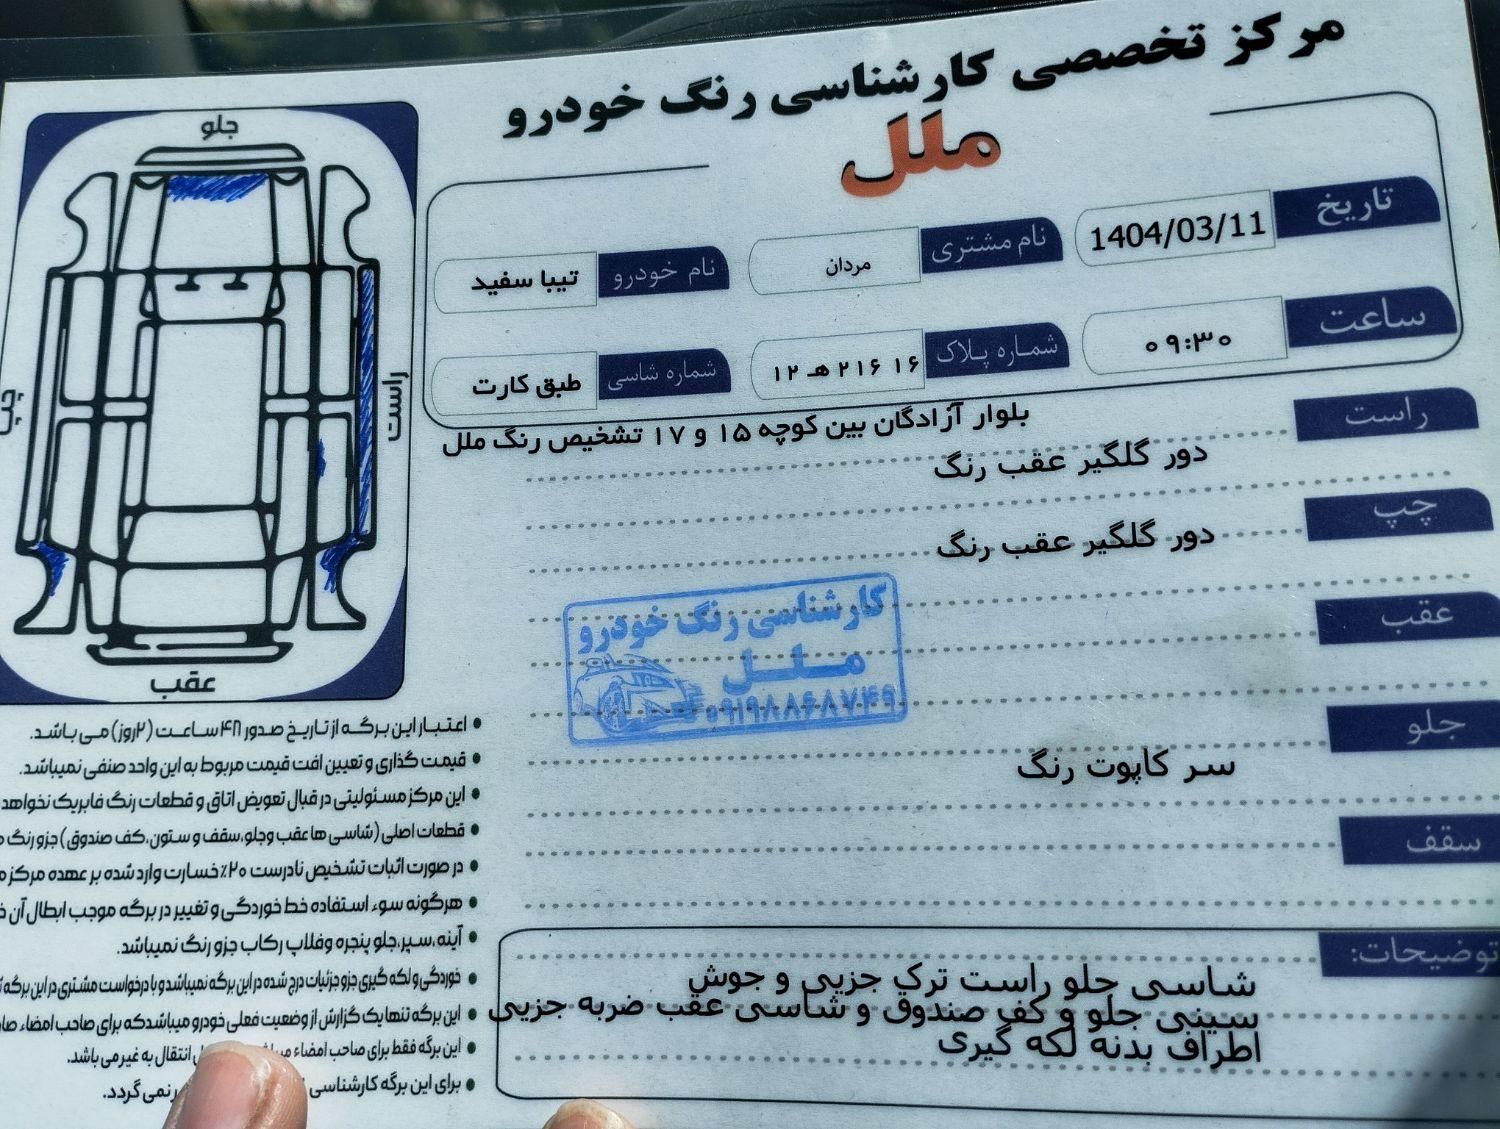 مرکز تخصصی کارشناسی رنگ خودرو
ملل
تاریخ 1404/03/11
نام مشتری مردان
نام خودرو تیبا سفید
ساعت ۰۹:۳۰
شماره پلاک ۱۶ ۲۱۶ هـ ۱۲
شماره شاسی طبق کارت
بلوار آزادگان بین کوچه ۱۵ و ۱۷ تشخیص رنگ ملل
راست
دور گلگیر عقب رنگ
چپ
دور گلگیر عقب رنگ
عقب
جلو
سر کاپوت رنگ
سقف
توضیحات:
شاسی جلو راست ترک جزیی و جوش
سینی جلو و کف صندوق و شاسی عقب ضربه جزیی
اطراف بدنه لکه گیری
کارشناسی رنگ خودرو
ملل
۰۹۱۹۸۸۶۸۷۴۹
جلو
راست
چپ
عقب
اعتبار این برگه از تاریخ صدور ۴۸ ساعت (۲روز) می باشد.
قیمت گذاری و تعیین افت قیمت مربوط به این واحد صنفی نمیباشد.
این مرکز مسئولیتی در قبال تعویض اتاق و قطعات رنگ فابریک نخواهد
قطعات اصلی (شاسی ها عقب وجلو،سقف و ستون،کف صندوق) جزو رنگ
در صورت اثبات تشخیص نادرست ۲۰٪ خسارت وارد شده بر عهده مرکز
هرگونه سوء استفاده خط خوردگی و تغییر در برگه موجب ابطال آن
آینه،سپر،جلو پنجره وفلاپ رکاب جزو رنگ نمیباشد
خوردگی و لکه گیری جزو جزئیات درج شده در این برگه نمیباشد و با درخواست مشتری در این برگه
این برگه تنها یک گزارش از وضعیت فعلی خودرو میباشد که برای صاحب امضاء
این برگه فقط برای صاحب امضاء انتقال به غیر می باشد.
برای این برگه کارشناسی نمی گردد.